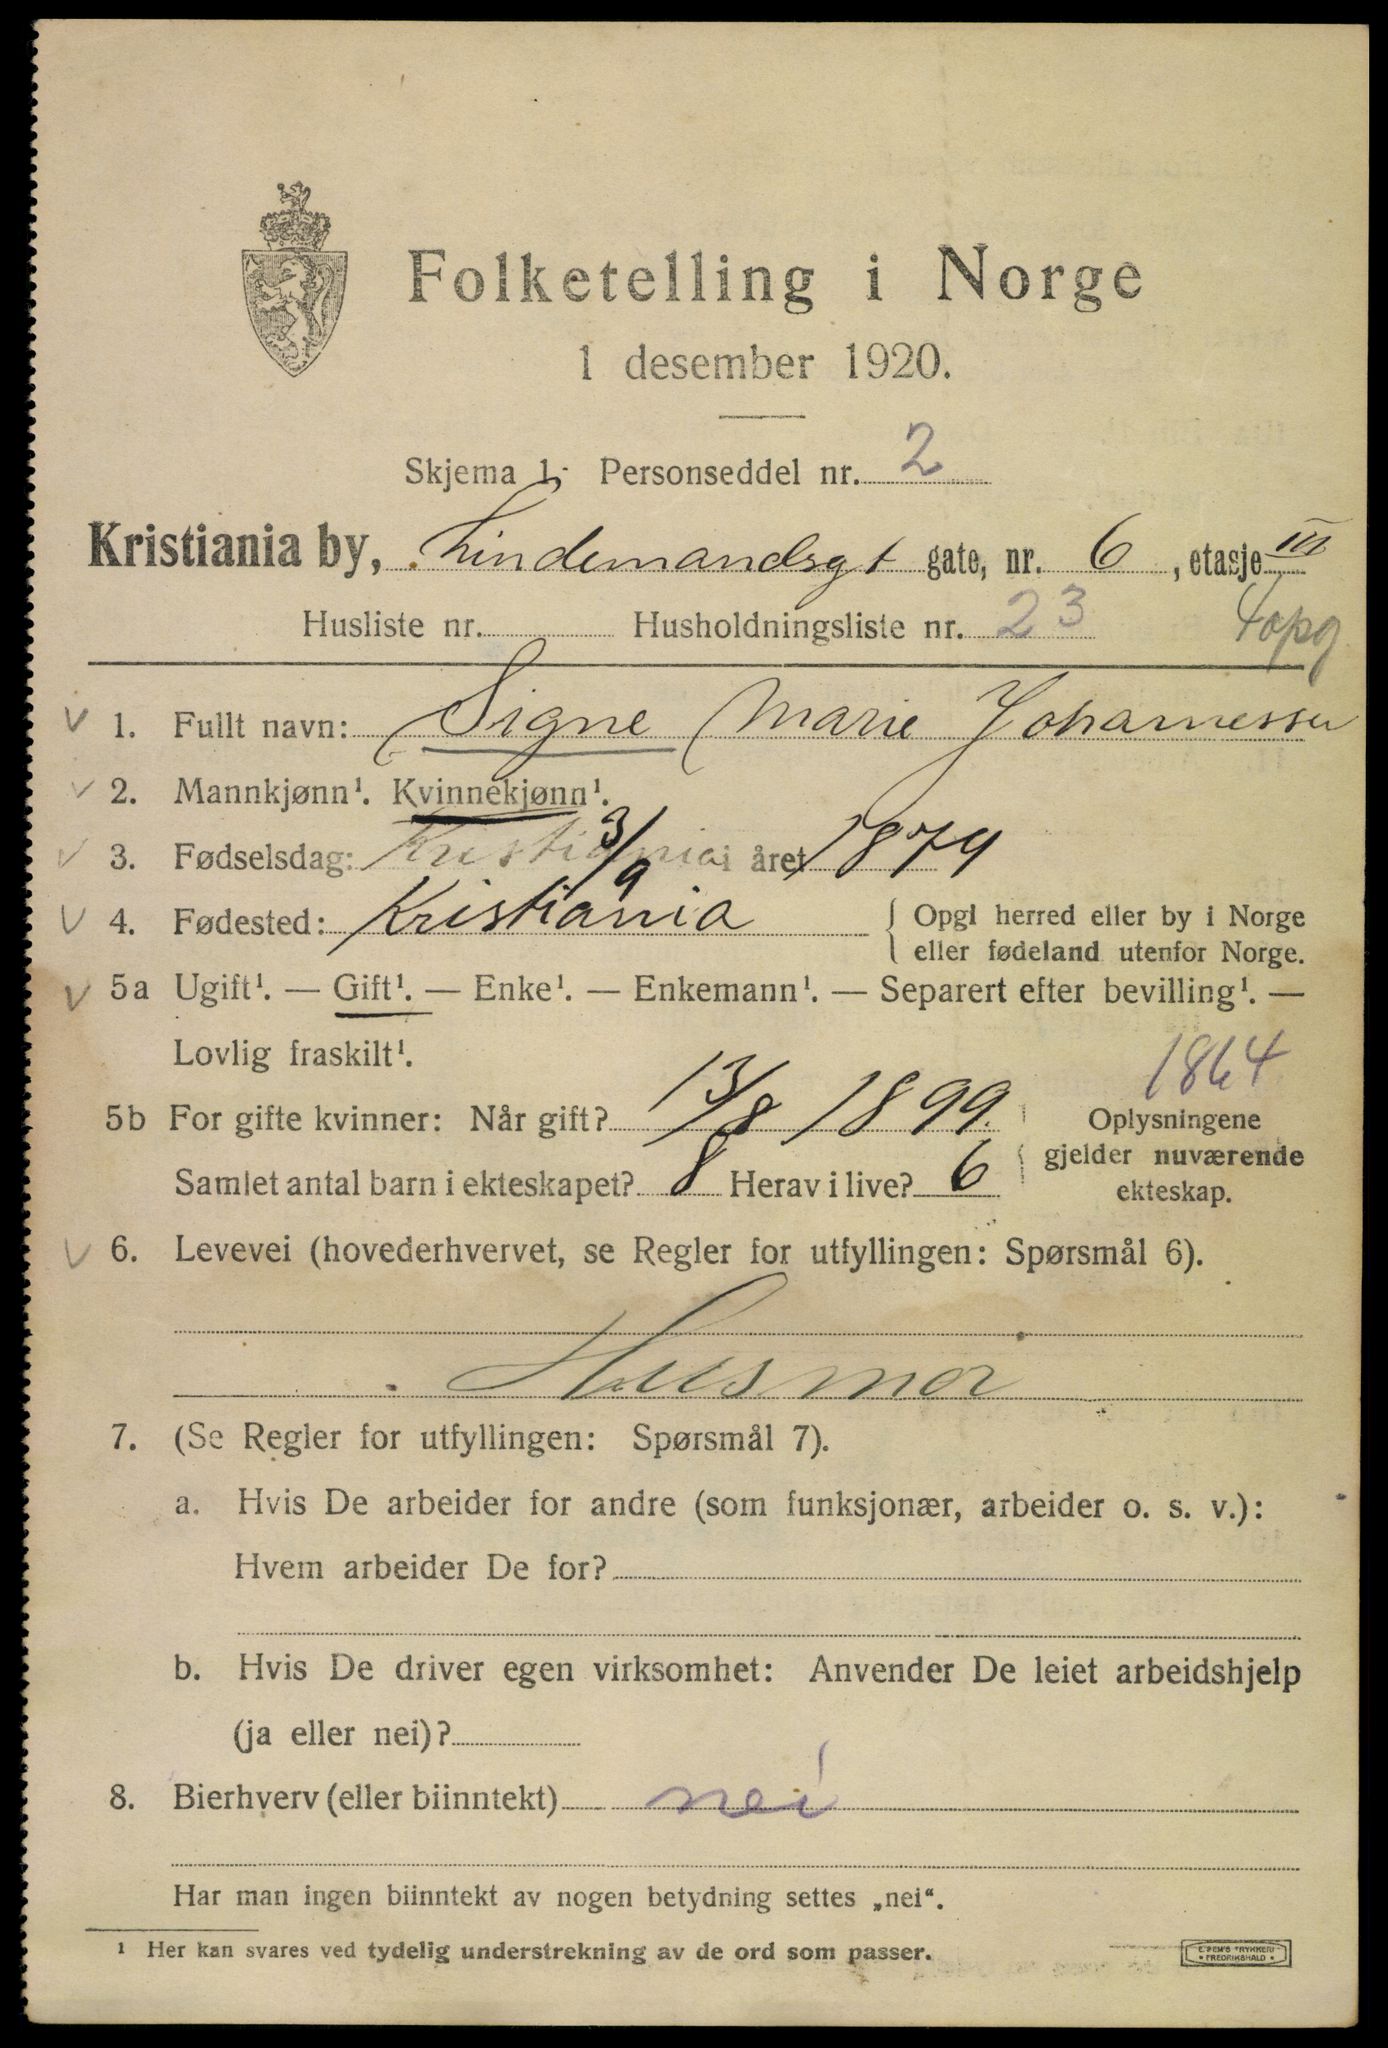 Folketelling i Norge
1 desember 1920.
Skjema 1. Personseddel nr. 2
Kristiania by, Lindemandsgt gate, nr. 6, etasje III
Husliste nr. Husholdningsliste nr. 23 4 opg
1. Fullt navn: Signe Marie Johannessen
2. Mannkjønn¹. Kvinnekjønn¹.
3. Fødselsdag: Kristiania 3/9 i året 1879
4. Fødested: Kristiania { Opgi herred eller by i Norge
eller fødeland utenfor Norge.
5a Ugift¹. — Gift¹. — Enke¹. — Enkemann¹. — Separert efter bevilling¹. —
Lovlig fraskilt¹. 1864
5b For gifte kvinner: Når gift? 13/8 1899. Oplysningene
gjelder nuværende
Samlet antal barn i ekteskapet? 8 Herav i live? 6 ekteskap.
6. Levevei (hovederhvervet, se Regler for utfyllingen: Spørsmål 6).
Husmor
7. (Se Regler for utfyllingen: Spørsmål 7).
a. Hvis De arbeider for andre (som funksjonær, arbeider o. s. v.):
Hvem arbeider De for?
b. Hvis De driver egen virksomhet: Anvender De leiet arbeidshjelp
(ja eller nei)?
8. Bierhverv (eller biinntekt) nei
Har man ingen biinntekt av nogen betydning settes „nei“.
¹ Her kan svares ved tydelig understrekning av de ord som passer.
FREDRIKSHALD